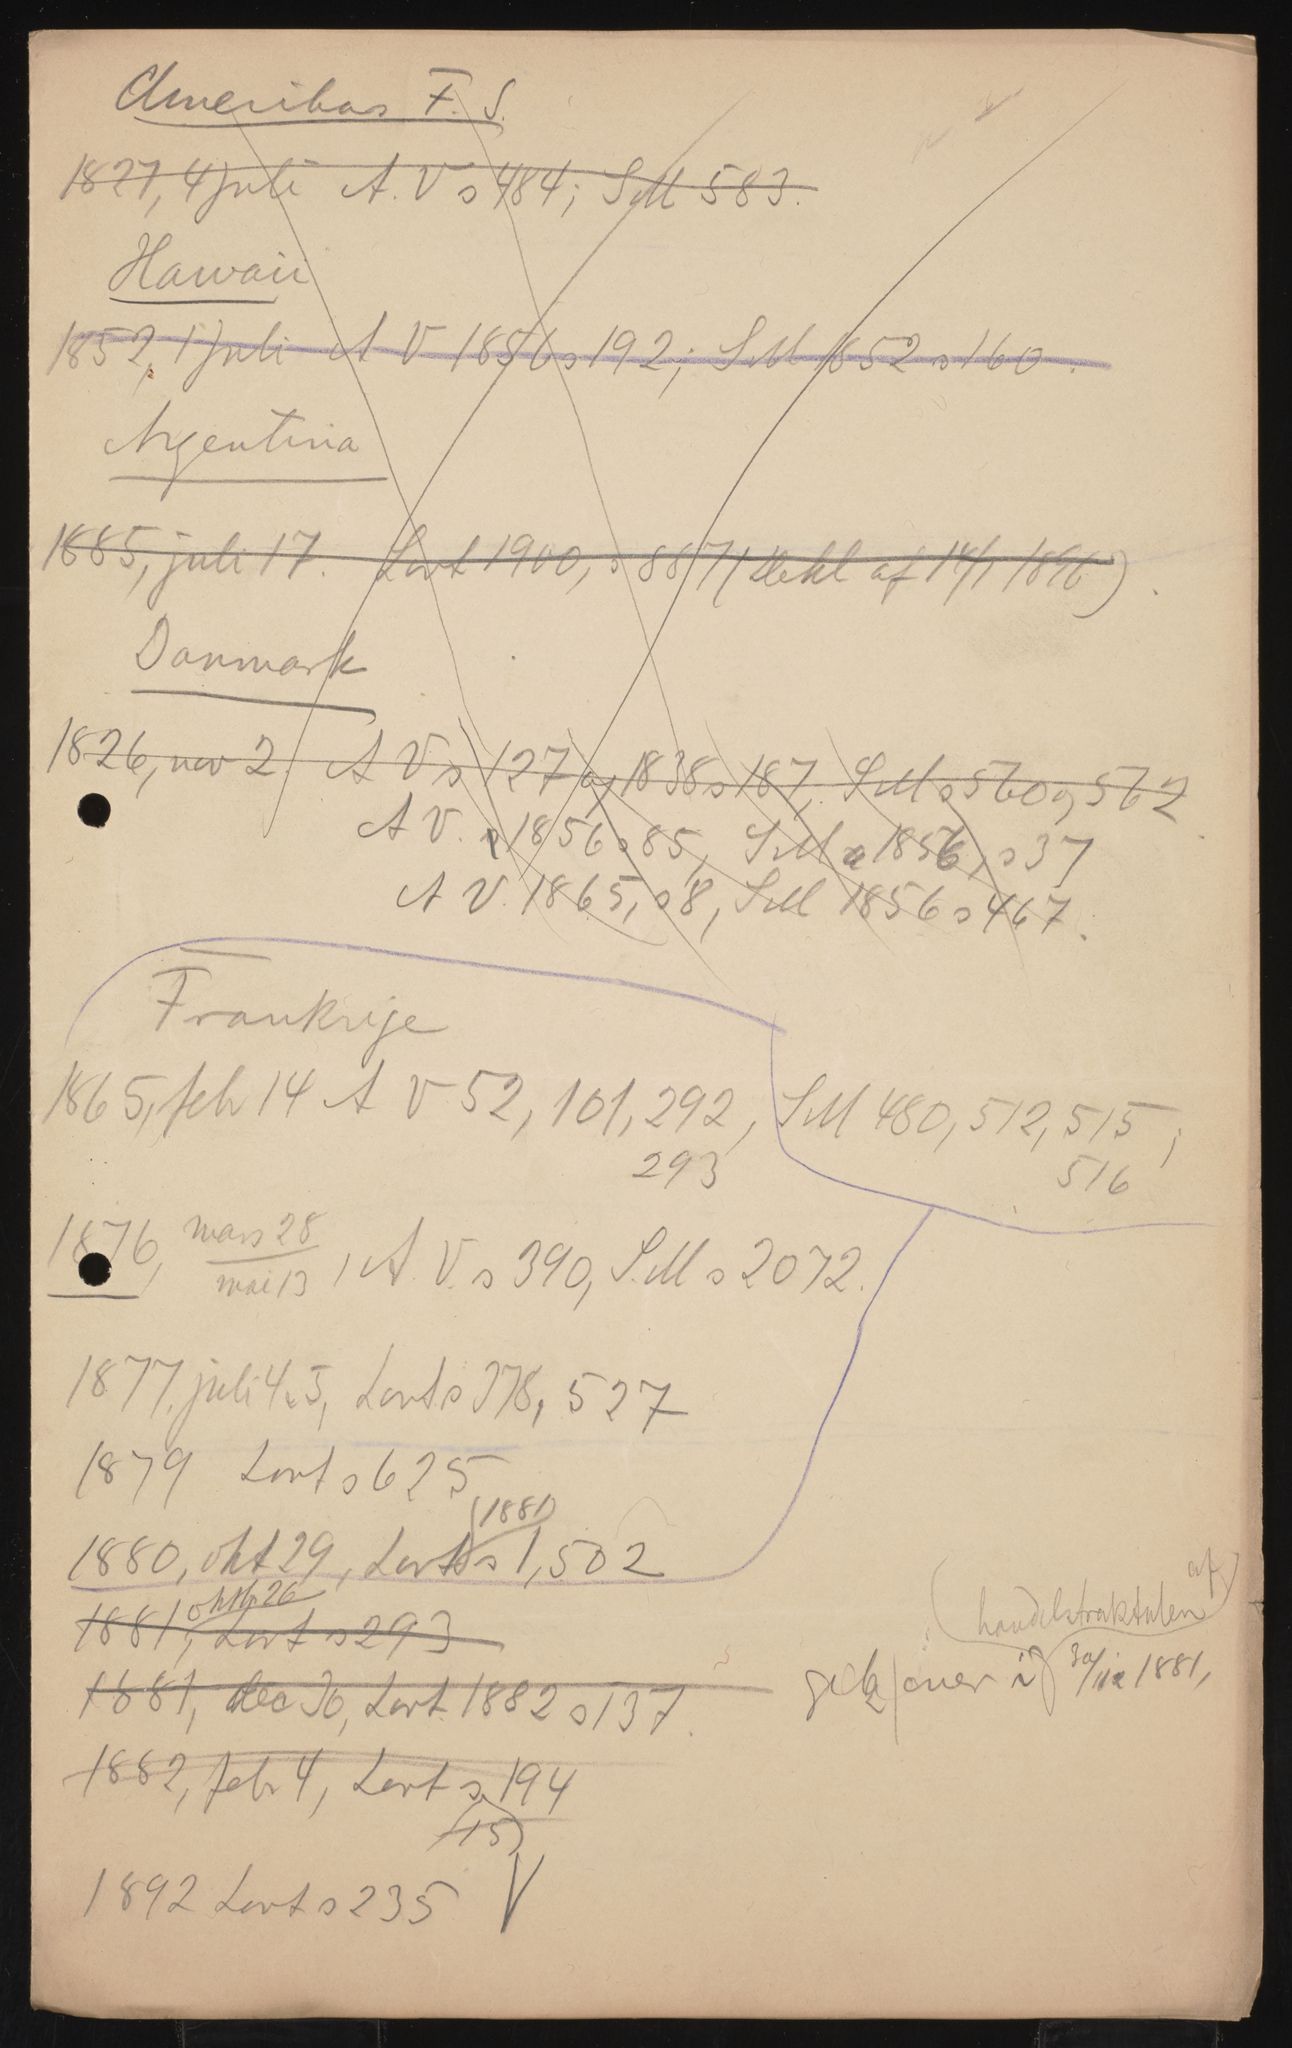 Amerikas F. S.
1827, 4 juli A. V s 484; S.M 583.
Hawaii
1852, 1 juli A V 1856 s 192; S M 1852 s 160.
Argentina
1885, juli 17. Lovt 1900, s 887 (Dekl af 14/1 1896).
Danmark
1826, nov 2. A V s 127 og 1838 s 187, S M s 560 og 562
A V. 1856 s 85, S M 1856, s 37
A V. 1865, s 8, S M 1856 s 467.
Frankrige
1865, feb 14 A V 52, 101, 292, S M 480, 512, 515;
293 516
1876, mars 28 / mai 13, A. V. s 390, S.M s 2072.
1877, juli 4 & 5, Lovt s 378, 527
1879 Lovt s 625
(1881)
1880, okt 29, Lovt s 1, 502
oktbr 26
1881, Lovt s 293
af
(handelstraktaten)
1881, dec 30, Lovt 1882 s 137.
i 30/12 1881,
1882, febr 4, Lovt s 194
(15)
1892 Lovt s 235 V